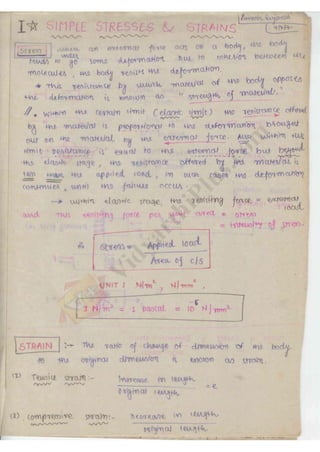 I☆ SIMPLE STRESSES & STRAINS
Stress when an external force acts on a body, the body
tends to go some deformation. Due to cohesion between the
molecules, the body resists the deformation.
* This resistance by which material of the body opposes
the deformation is known as strength of material.
within the certain limit (elastic limit) the resistance offered
by the material is proportional to the deformation brought
out on the material by the external force. Also within this
limit resistance is equal to the external force but beyond
the elastic stage, the resistance offered by the material is
less than the applied load, in such cases the deformation
continues, until the failure occurs.
→ within elastic stage, the resisting force = external
load
and this resisting force per unit area = stress
= intensity of stress.
Stress = Applied load
Area of c/s
UNIT : N/m², N/mm².
1 N/m² = 1 pascal = 10⁻⁶ N/mm²
STRAIN :→ The ratio of change of dimension of the body
to the original dimension is known as strain.
(1) Tensile strain:- Increase in length
original length = e
(2) compressive strain:- Decrease in length
original length